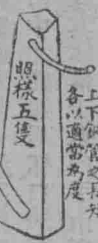 上下銅管之長大
各以適當為度
照樣五隻